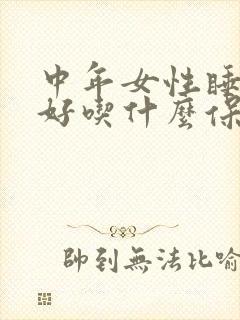 中年女性睡
好喫什麼保
帥到無法比喻